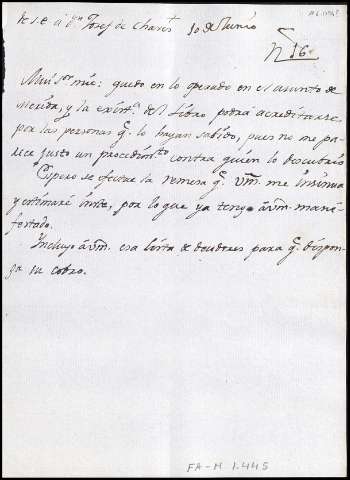 de S.E. a Dn Josef de Charost 10 de Junio
N 16
Mui Sor mio: quedo en lo operado en el asunto de
y la exista del Libro podrá acreditarse
por las personas q. lo hayan sabido, pues no me pa-
rece justo un procedimto contra quien lo descubrió
Espero se efectue la remesa q. Vm. me insinua
y estimaré inste, por lo que ya tengo á vm. mani-
festado.
Incluyo á vm. esa lista de deudores para q. dispon-
ga su cobro.
FA-M 1.445